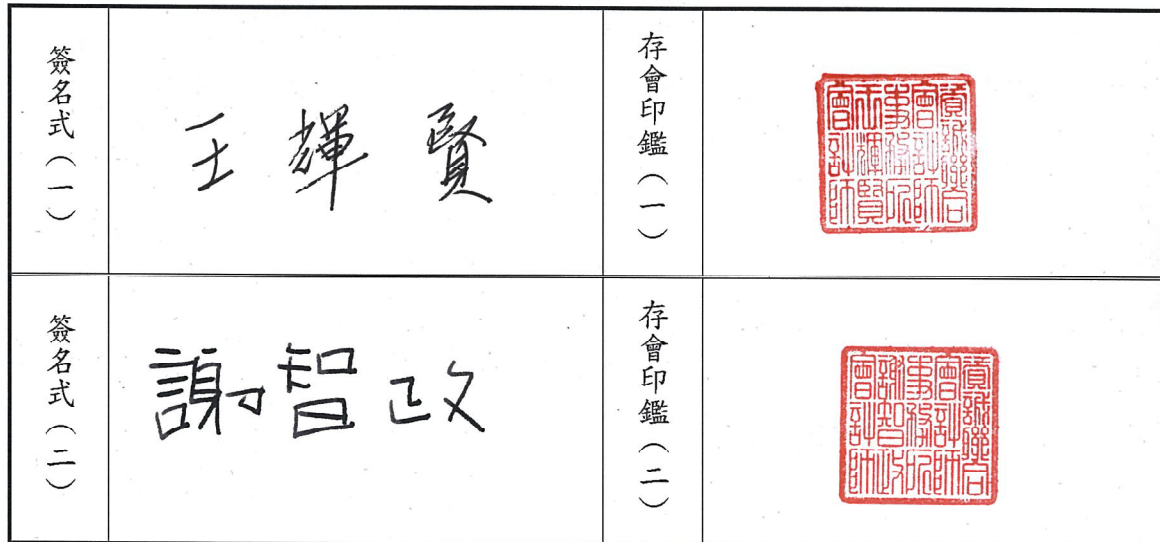 簽名式（一）
王輝賢
存會印鑑（一）
貢誠聯合
會計師
事務所
王輝賢
會計師
簽名式（二）
謝智政
存會印鑑（二）
貢誠聯合
會計師
事務所
謝智政
會計師